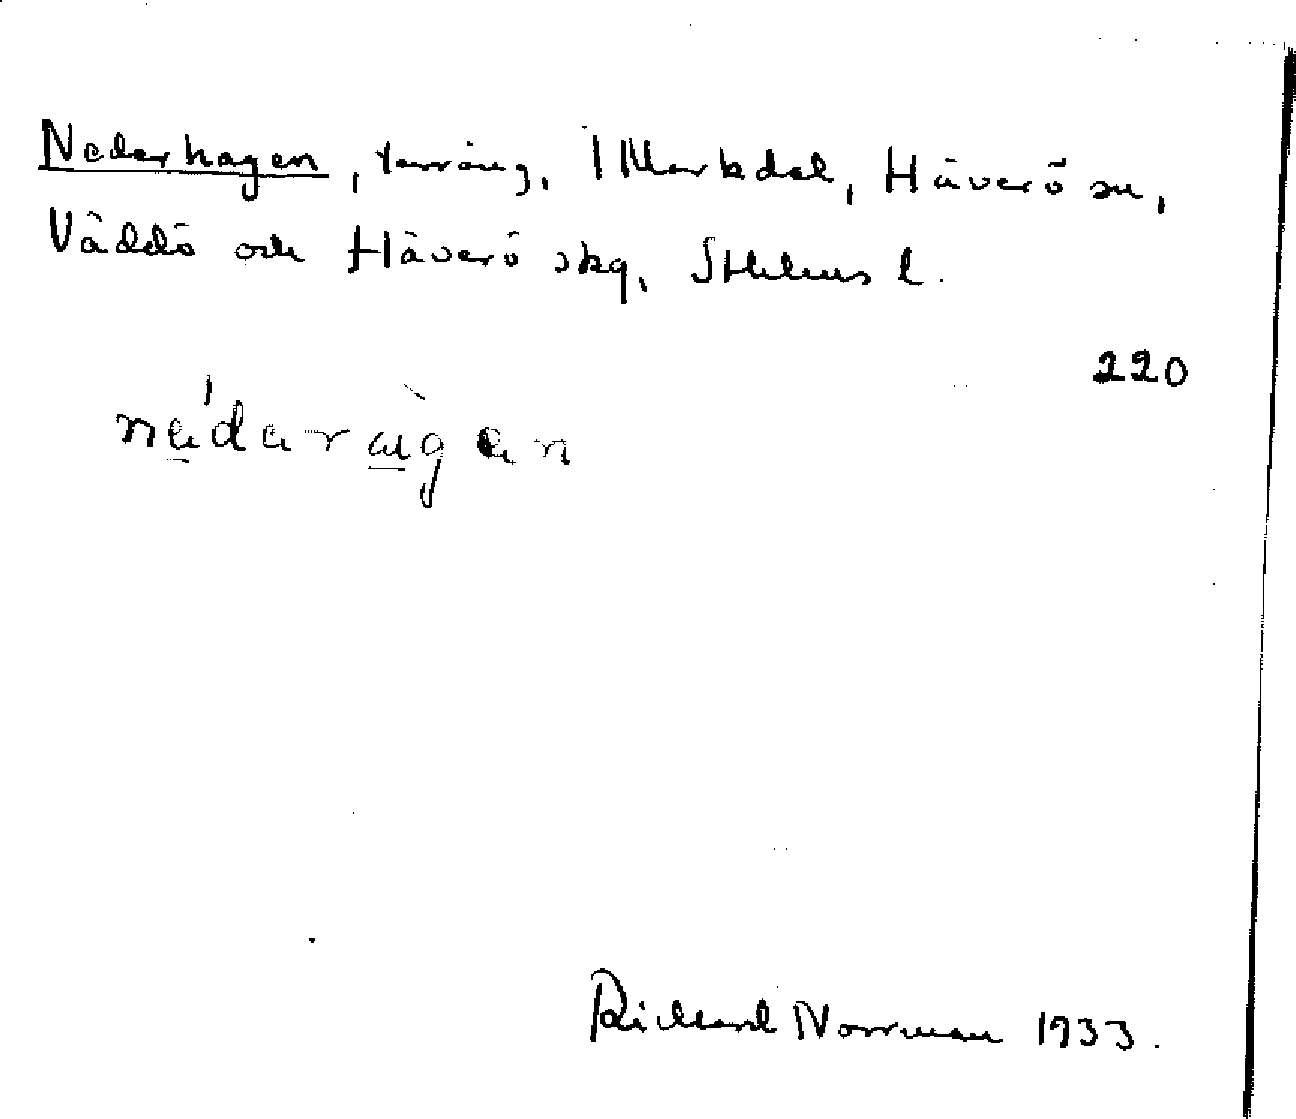 Nederhagen, terräng, 1 Markdal, Häverö sn,
Väddö och Häverö skg, Sthlms l.
220
nédaràgan
Richard Norrman 1933.